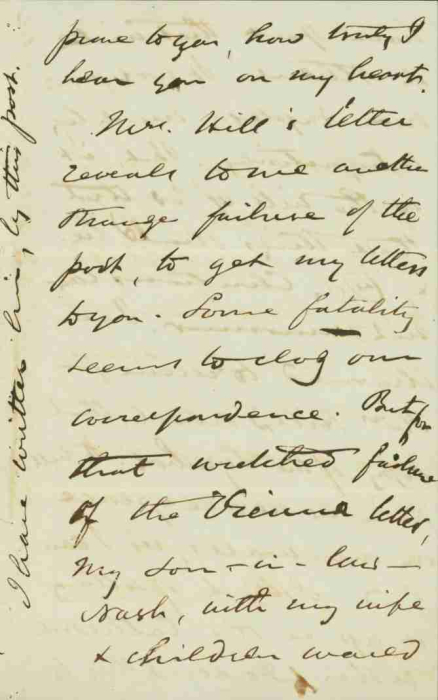 prove to you, how truly I
bear you on my heart.
Mrs. Hill's letter
reveals to me another
strange failure of the
post, to get my letters
to you. Some fatality
seems to clog our
correspondence. But for
that wretched failure
of the Vienna letter,
my son-in-law-
Nash, with my wife
& children would
I have written him, by this post.